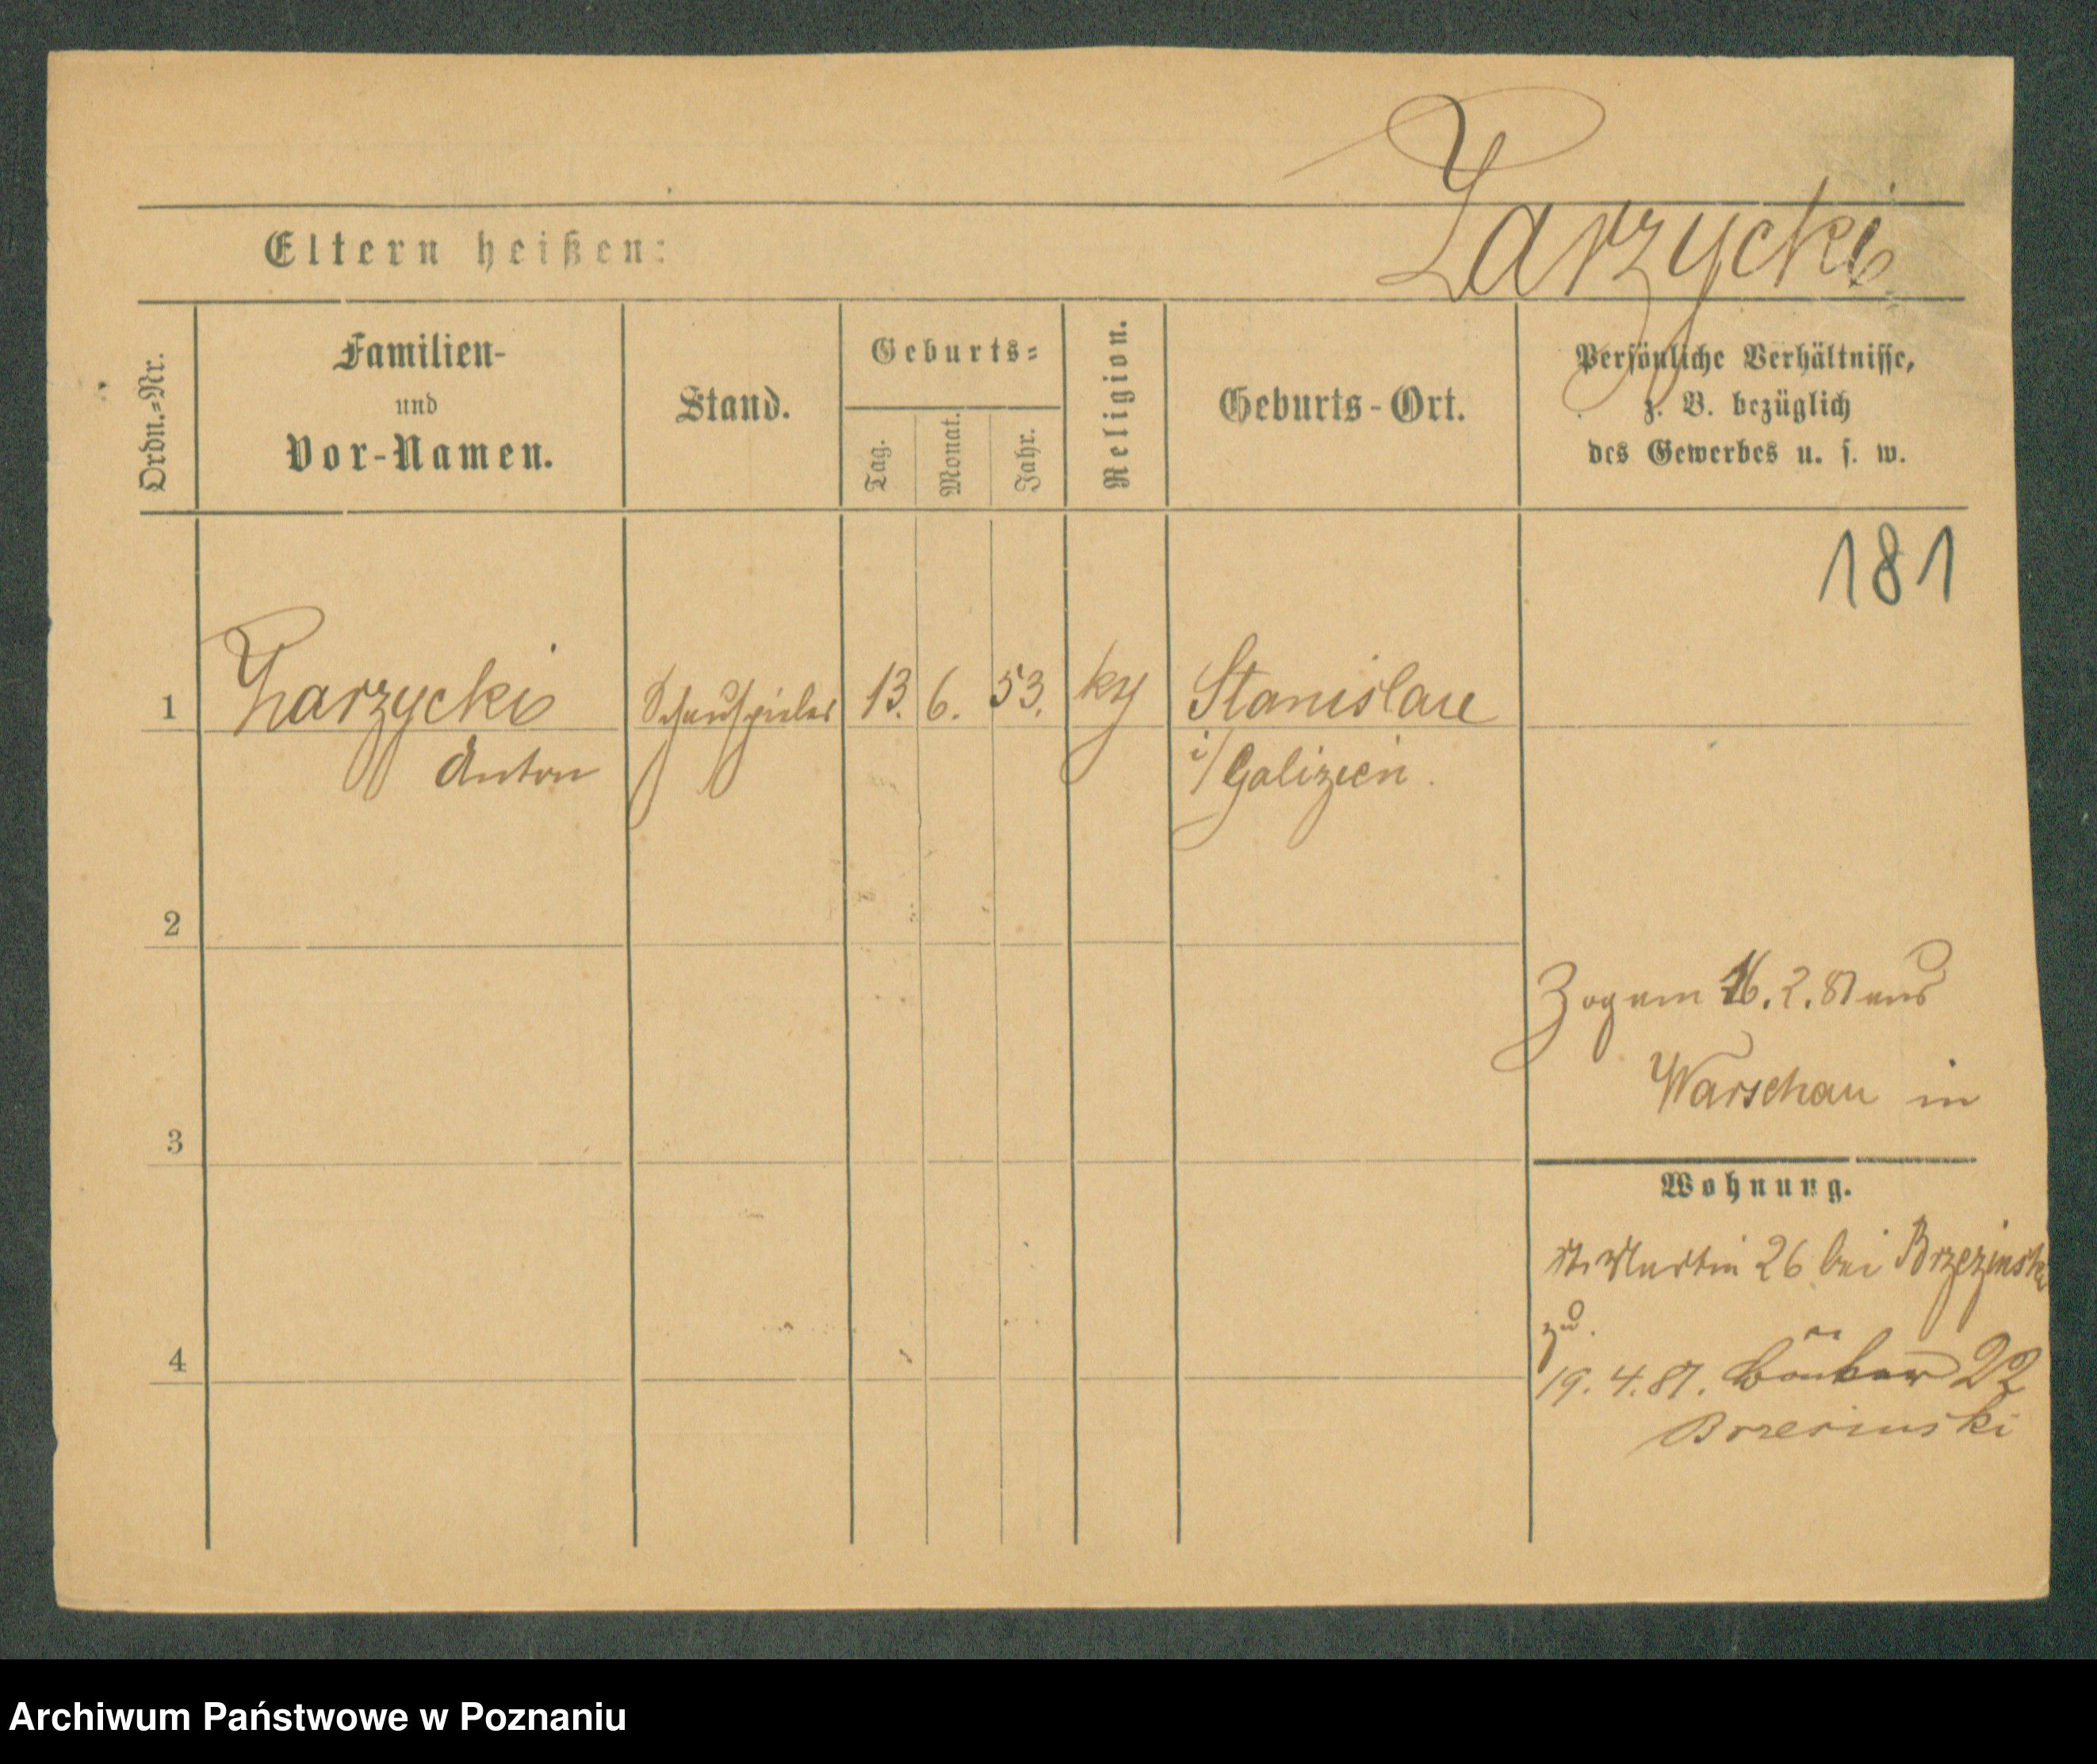 Zarzycki
Eltern heißen:
Ordn.=Nr.
Familien-
und
Vor-Namen.
Stand.
Geburts=
Tag.
Monat.
Jahr.
Religion.
Geburts-Ort.
Persönliche Verhältnisse,
z. B. bezüglich
des Gewerbes u. s. w.
181
1
Zarzycki
Anton
Schauspieler
13.
6.
53.
Stanislau
i/Galizien.
2
Zog am 16. 2. 81 aus
Warschau in
3
Wohnung.
St. Martin 26 bei Brzezinski
4
19. 4. 81. 22
Brzesinski
Archiwum Państwowe w Poznaniu